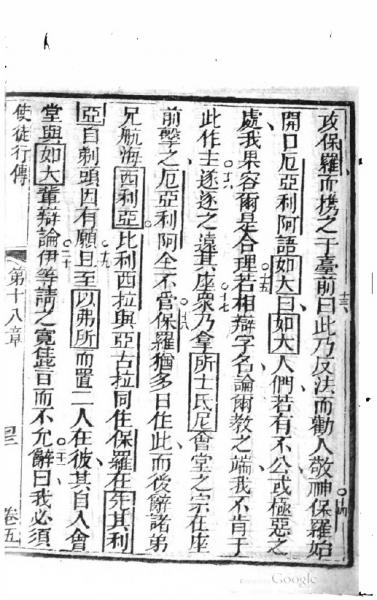 攻保羅而携之于臺前曰此乃反法而勸人敬神保羅始
開口厄亞利阿語如大曰如大人們若有不公或極惡之
處我果容爾是合理若相辯字名論爾教之端我不肯于
此作士遂逐之遠其座衆乃拿所士氏尼會堂之宗在座
前擊之厄亞利阿全不管保羅猶多日住此而後辭諸弟
兄航海西利亞比利西拉與亞古拉同往保羅在先其利
亞自剃頭因有願且至以弗所而置二人在彼其自入會
堂與如大輩辯論伊等請之寬住而不允辭曰我必須
使徒行傳
第十八章
卷五
十三
十四
十五
十六
十七
十八
二十
二一
Google